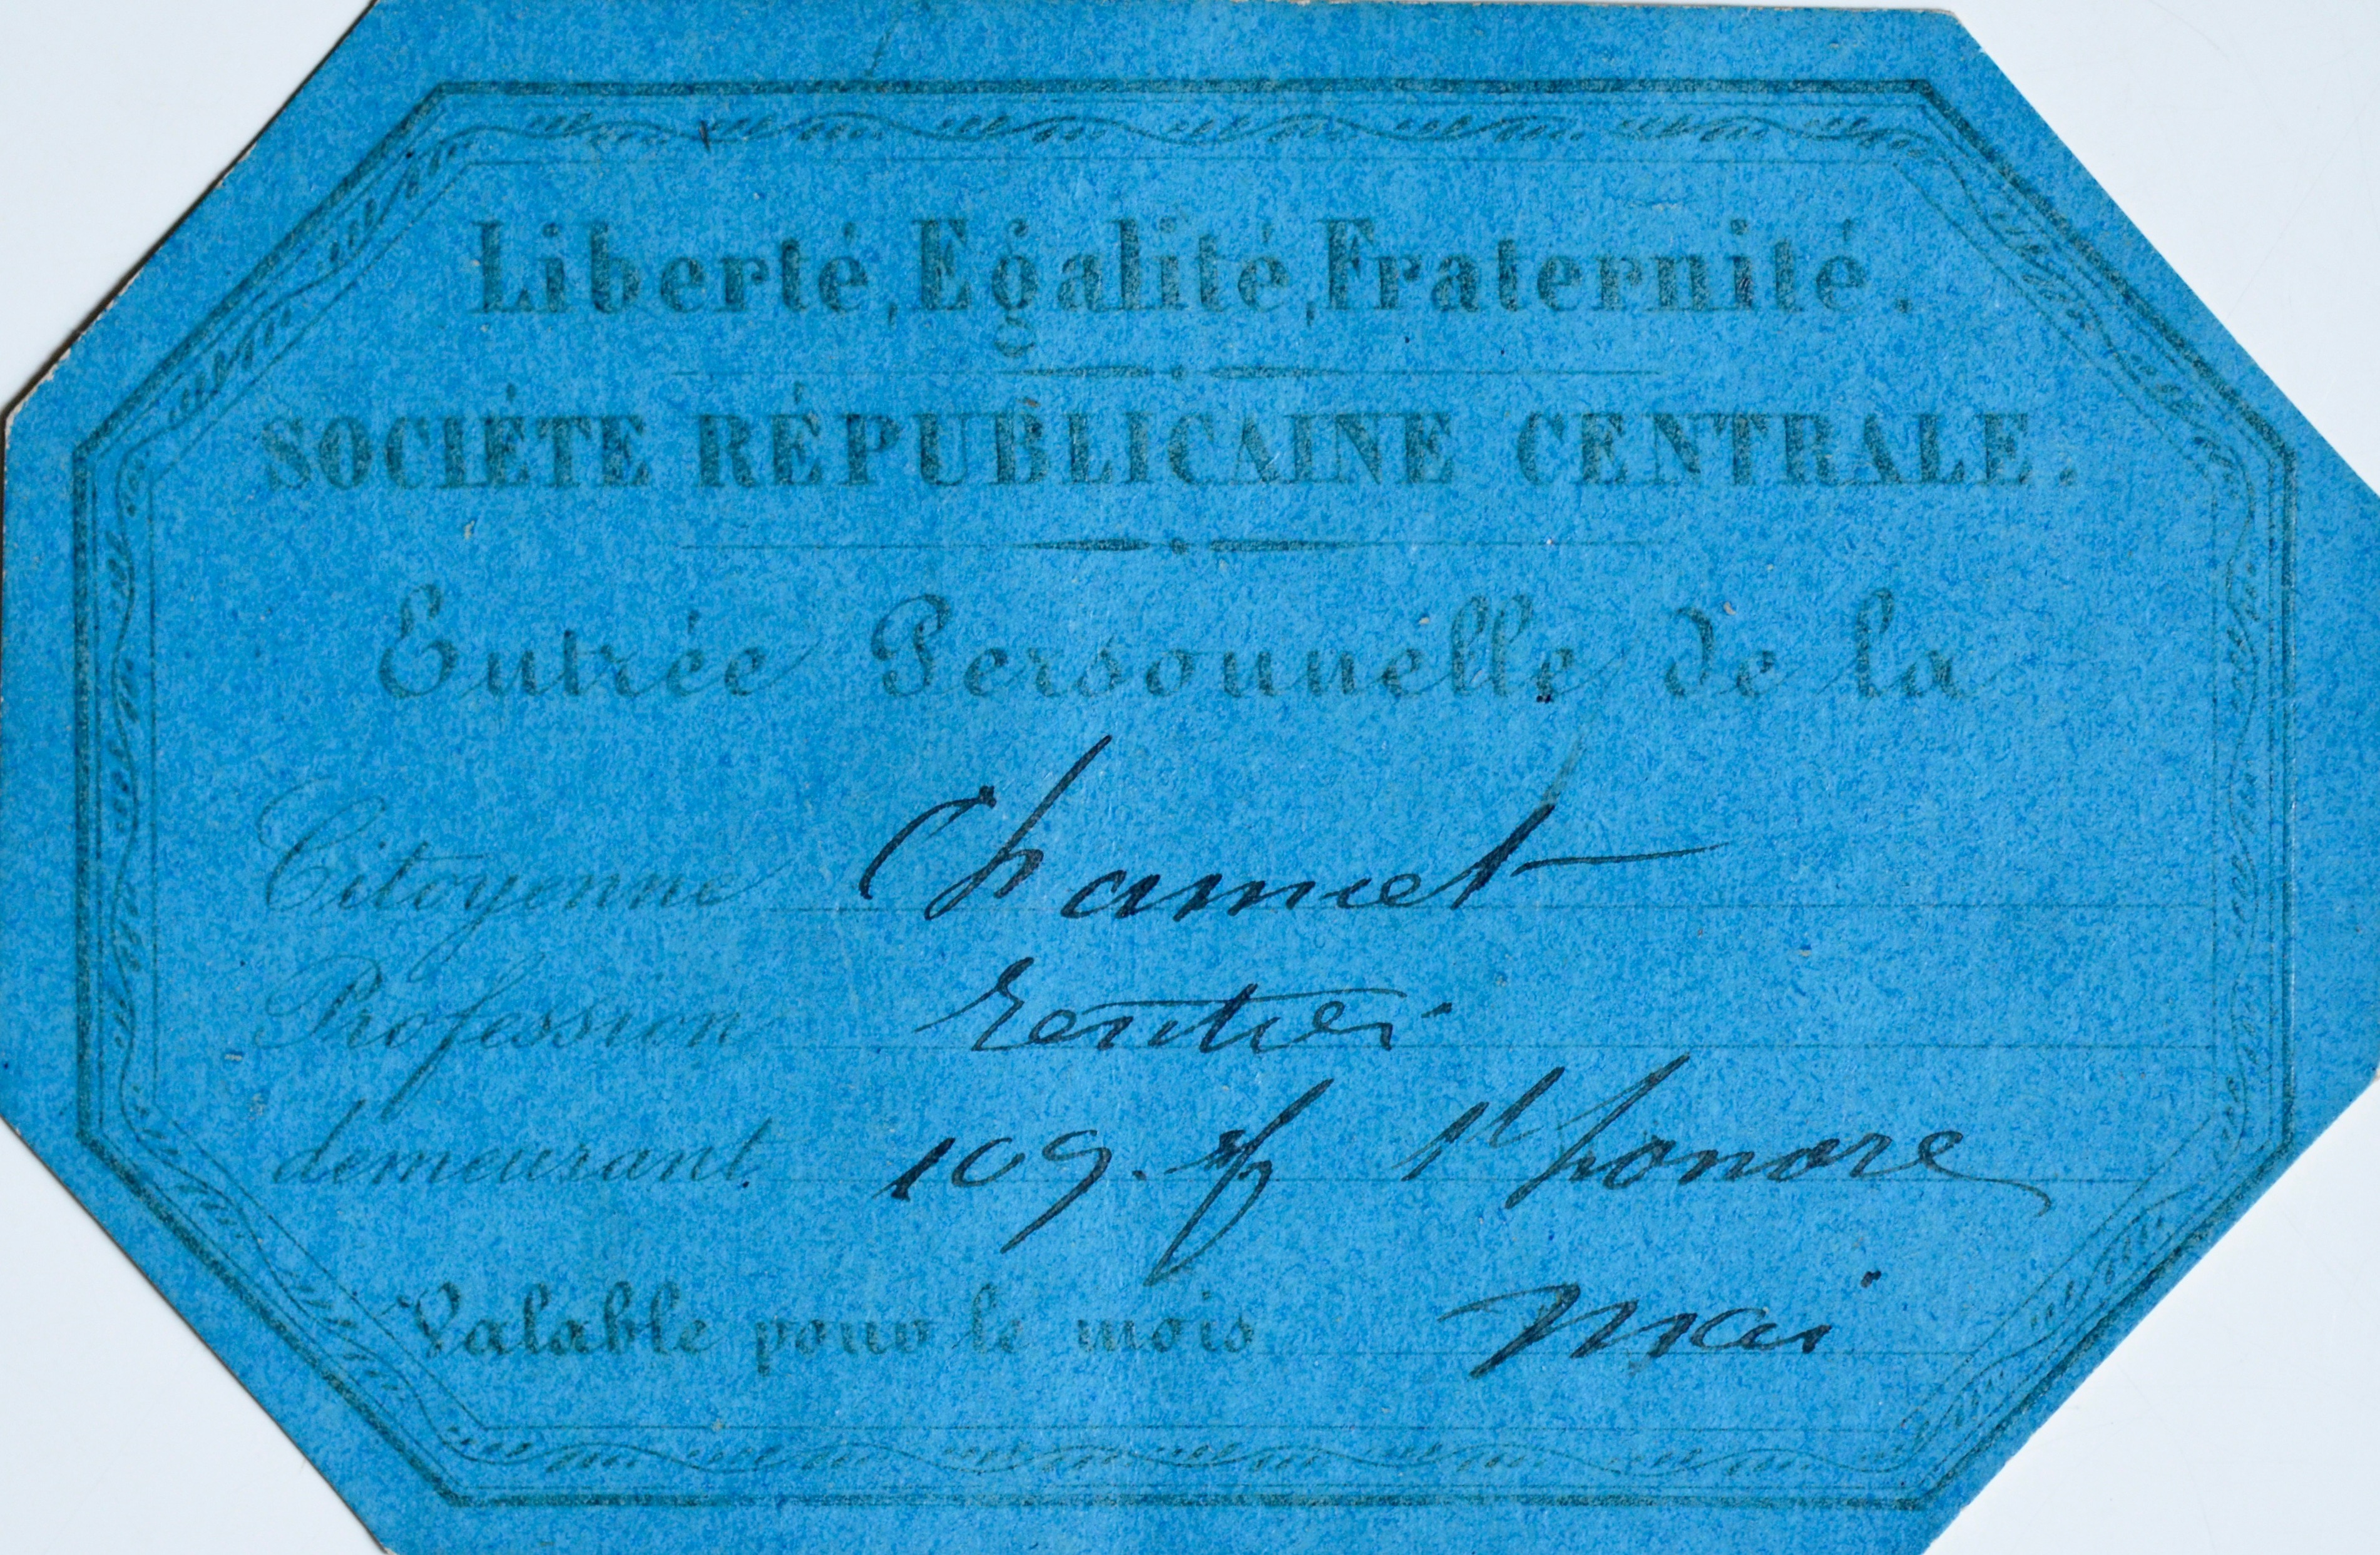 Liberté, Egalité, Fraternité.
SOCIÉTÉ RÉPUBLICAINE CENTRALE.
Entrée Personnelle de la
Citoyenne
Profession rentier
demeurant 109. f St honore
Valable pour le mois mai